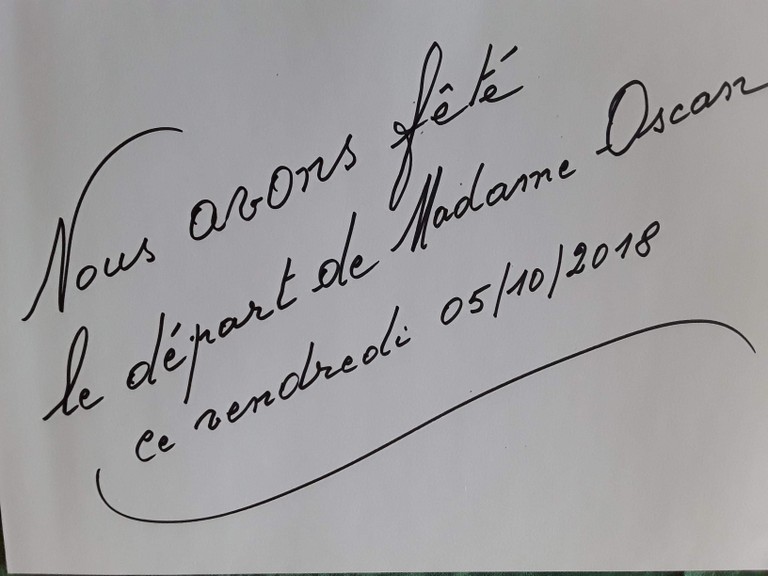 Nous avons fêté
le départ de Madame Oscar
ce vendredi 05/10/2018